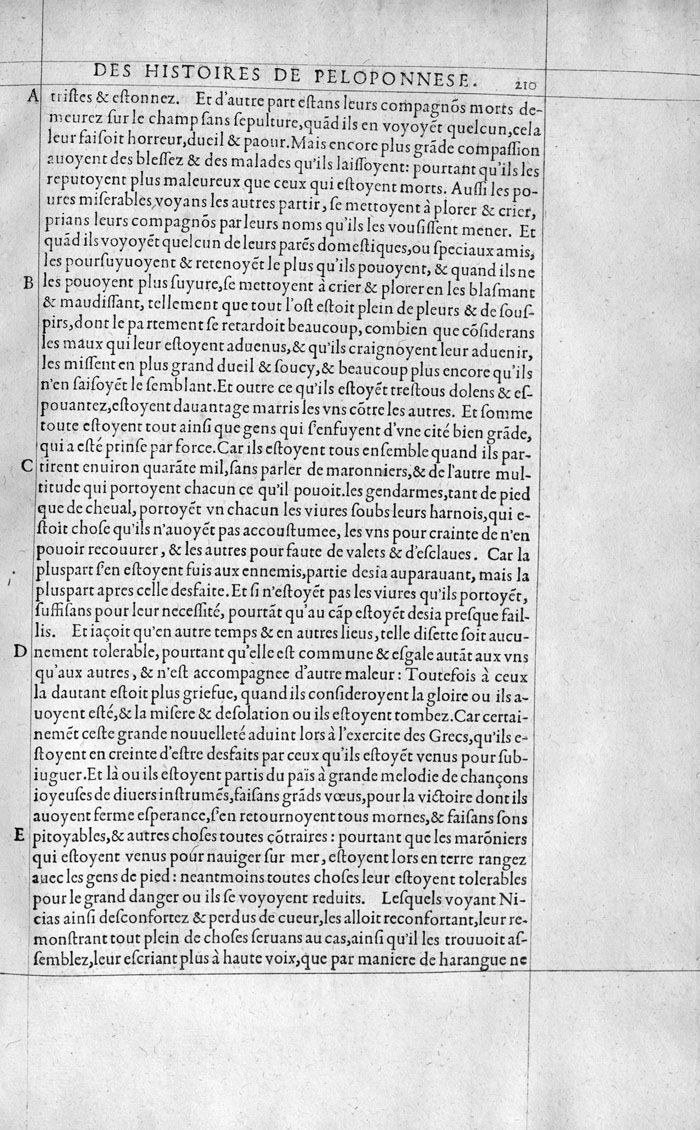 DES HISTOIRES DE PELOPONNESE. 210
A triſtes & eſtonnez. Et d'autre part eſtans leurs compagnõs morts de-
meurez ſur le champ ſans ſepulture, quãd ils en voyoyẽt quelcun, cela
leur faiſoit horreur, dueil & paour. Mais encore plus grãde compaſſion
auoyent des bleſſez & des malades qu'ils laiſſoyent: pourtant qu'ils les
reputoyent plus maleureux que ceux qui eſtoyent morts. Auſſi les po-
ures miſerables voyans les autres partir, ſe mettoyent à plorer & crier,
prians leurs compagnõs par leurs noms qu'ils les vouſiſſent mener. Et
quãd ils voyoyẽt quelcun de leurs parẽs domeſtiques, ou ſpeciaux amis,
les pourſuyuoyent & retenoyẽt le plus qu'ils pouoyent, & quand ils ne
B les pouoyent plus ſuyure, ſe mettoyent à crier & plorer en les blaſmant
& maudiſſant, tellement que tout l'oſt eſtoit plein de pleurs & de souſ-
pirs, dont le partement ſe retardoit beaucoup, combien que cõſiderans
les maux qui leur eſtoyent aduenus, & qu'ils craignoyent leur aduenir,
les miſſent en plus grand dueil & ſoucy, & beaucoup plus encore qu'ils
n'en faiſoyẽt le ſemblant. Et outre ce qu'ils eſtoyẽt treſtous dolens & eſ-
pouantez, eſtoyent dauantage marris les vns cõtre les autres. Et ſomme
toute eſtoyent tout ainſi que gens qui ſ'enfuyent d'vne cité bien grãde,
qui a eſté prinſe par force. Car ils eſtoyent tous enſemble quand ils par-
C tirent enuiron quarãte mil, ſans parler de maronniers, & de l'autre mul-
titude qui portoyent chacun ce qu'il pouoit. les gendarmes, tant de pied
que de cheual, portoyẽt vn chacun les viures ſoubs leurs harnois, qui e-
ſtoit choſe qu'ils n'auoyẽt pas accouſtumee, les vns pour crainte de n'en
pouoir recouurer, & les autres pour faute de valets & d'eſclaues. Car la
pluspart ſ'en eſtoyent fuis aux ennemis, partie desia auparauant, mais la
pluspart apres celle desfaite. Et ſi n'eſtoyẽt pas les viures qu'ils portoyẽt,
ſuffiſans pour leur neceſſité, pourtãt qu'au cãp eſtoyẽt desia preſque fail-
lis. Et iaçoit qu'en autre temps & en autres lieus, telle diſette ſoit aucu-
D nement tolerable, pourtant qu'elle eſt commune & eſgale autãt aux vns
qu'aux autres, & n'eſt accompagnee d'autre maleur: Toutefois à ceux
la dautant eſtoit plus grieſue, quand ils conſideroyent la gloire ou ils a-
uoyent eſté, & la miſere & deſolation ou ils eſtoyent tombez. Car certai-
nemẽt ceſte grande nouuelleté aduint lors à l'exercite des Grecs, qu'ils e-
ſtoyent en creinte d'eſtre desfaits par ceux qu'ils eſtoyẽt venus pour ſub-
iuguer. Et là ou ils eſtoyent partis du païs à grande melodie de chançons
ioyeuſes de diuers inſtrumẽs, faiſans grãds vœus, pour la victoire dont ils
auoyent ferme eſperance, ſ'en retournoyent tous mornes, & faiſans ſons
E pitoyables, & autres choſes toutes cõtraires: pourtant que les marõniers
qui eſtoyent venus pour nauiger ſur mer, eſtoyent lors en terre rangez
auec les gens de pied: neantmoins toutes choſes leur eſtoyent tolerables
pour le grand danger ou ils ſe voyoyent reduits. Leſquels voyant Ni-
cias ainſi deſconfortez & perdus de cueur, les alloit reconfortant, leur re-
monſtrant tout plein de choſes ſeruans au cas, ainſi qu'il les trouuoit aſ-
ſemblez, leur eſcriant plus à haute voix, que par maniere de harangue ne